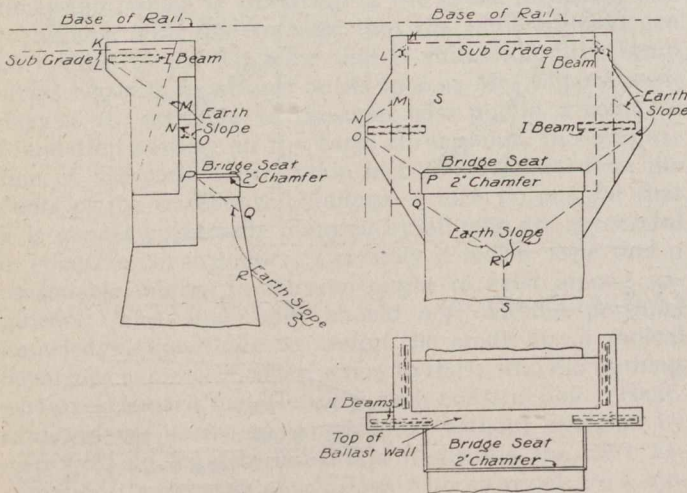 Base of Rail
K
Sub Grade
L
I Beam
M
Earth
Slope
N
O
Bridge Seat
P
2" Chamfer
Q
R
Earth Slope
S
Base of Rail
K
L
Sub Grade
I Beam
M
S
Earth
Slope
N
O
I Beam
Bridge Seat
P
2" Chamfer
Q
Earth Slope
R
S
I Beams
Top of
Ballast Wall
Bridge Seat
2" Chamfer